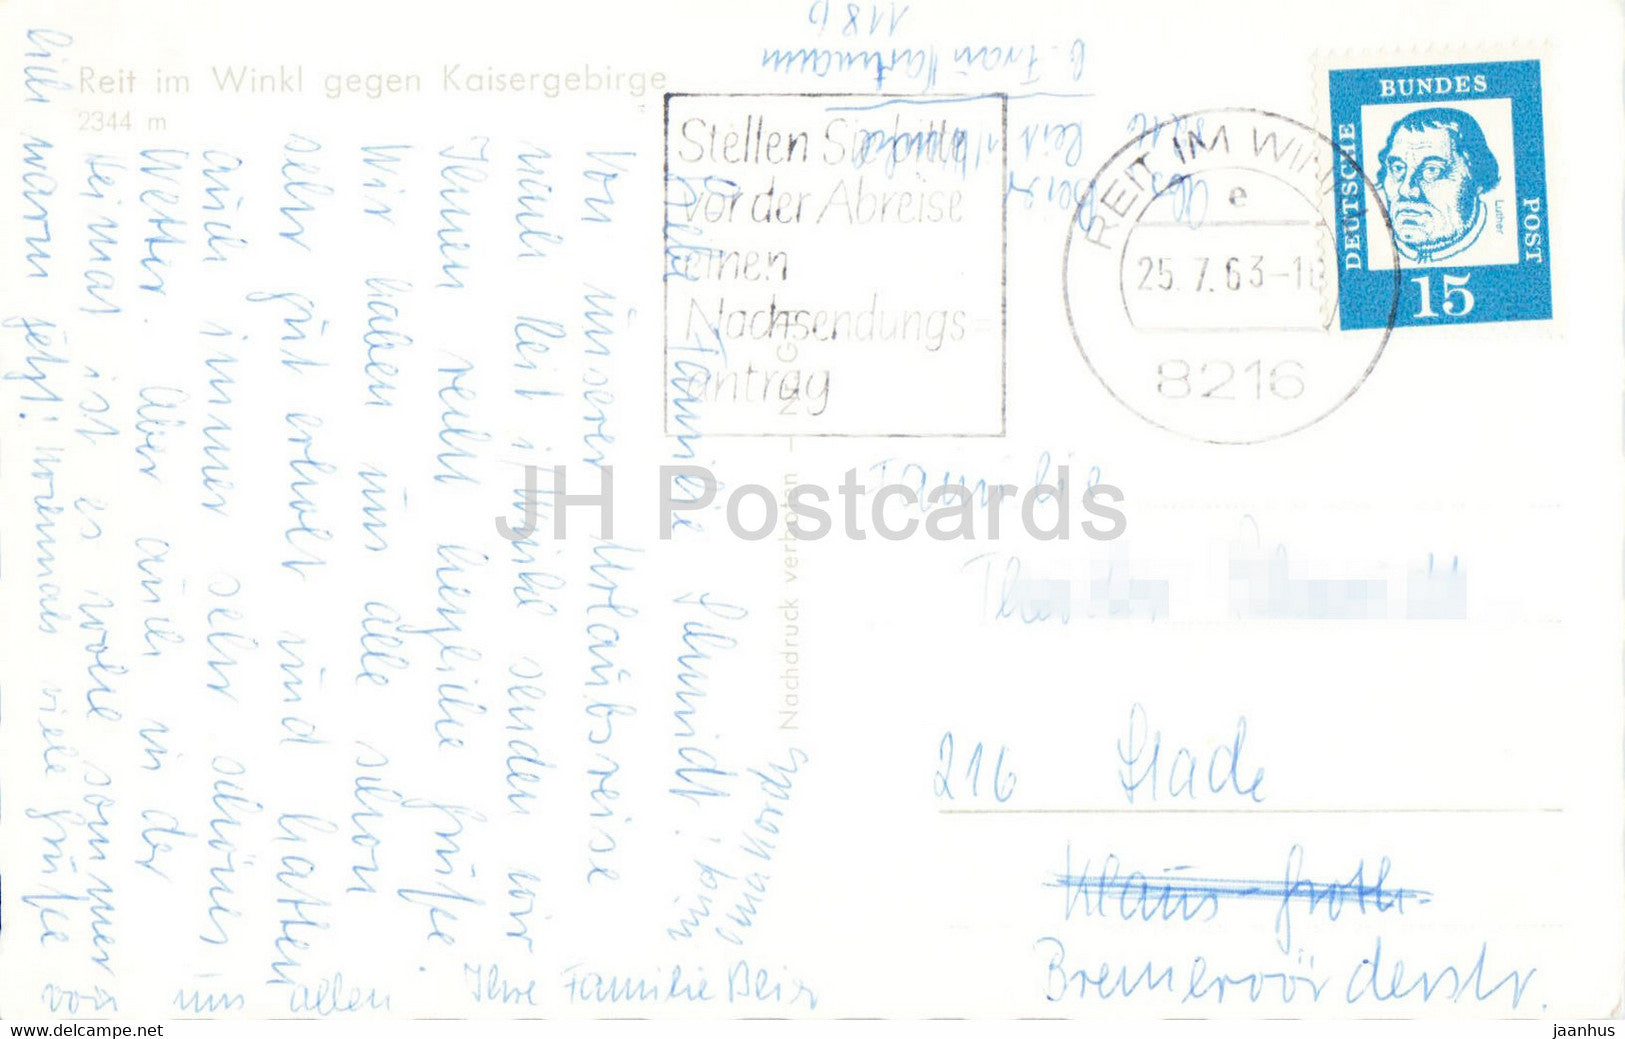 Reit im Winkl gegen Kaisergebirge
2344 m
Stellen Sie bitte
vor der Abreise
einen
Nachsendungs=
antrag
REIT IM WINKL
e
25. 7. 63-18
8216
DEUTSCHE
BUNDES
POST
Luther
15
Abs.
Beier
8216 Reit i/Winkl
b. Frau Hartmann
118 b
Liebe Familie Schmidt!
Von unserer Urlaubsreise
nach Reit i/Winkl senden wir
Ihnen recht herzliche Grüße.
Wir haben uns alle schon
sehr gut erholt und hatten
auch immer sehr schönes
Wetter. Aber auch in der
Heimat ist es wohl sommer
lich warm jetzt! Nochmals viele Grüße
von uns allen Ihre Familie Beier
Nachdruck verboten
Familie
216 Stade
Klaus-Groth-
Bremervörderstr.
JH Postcards
jaanhus
www.delcampe.net